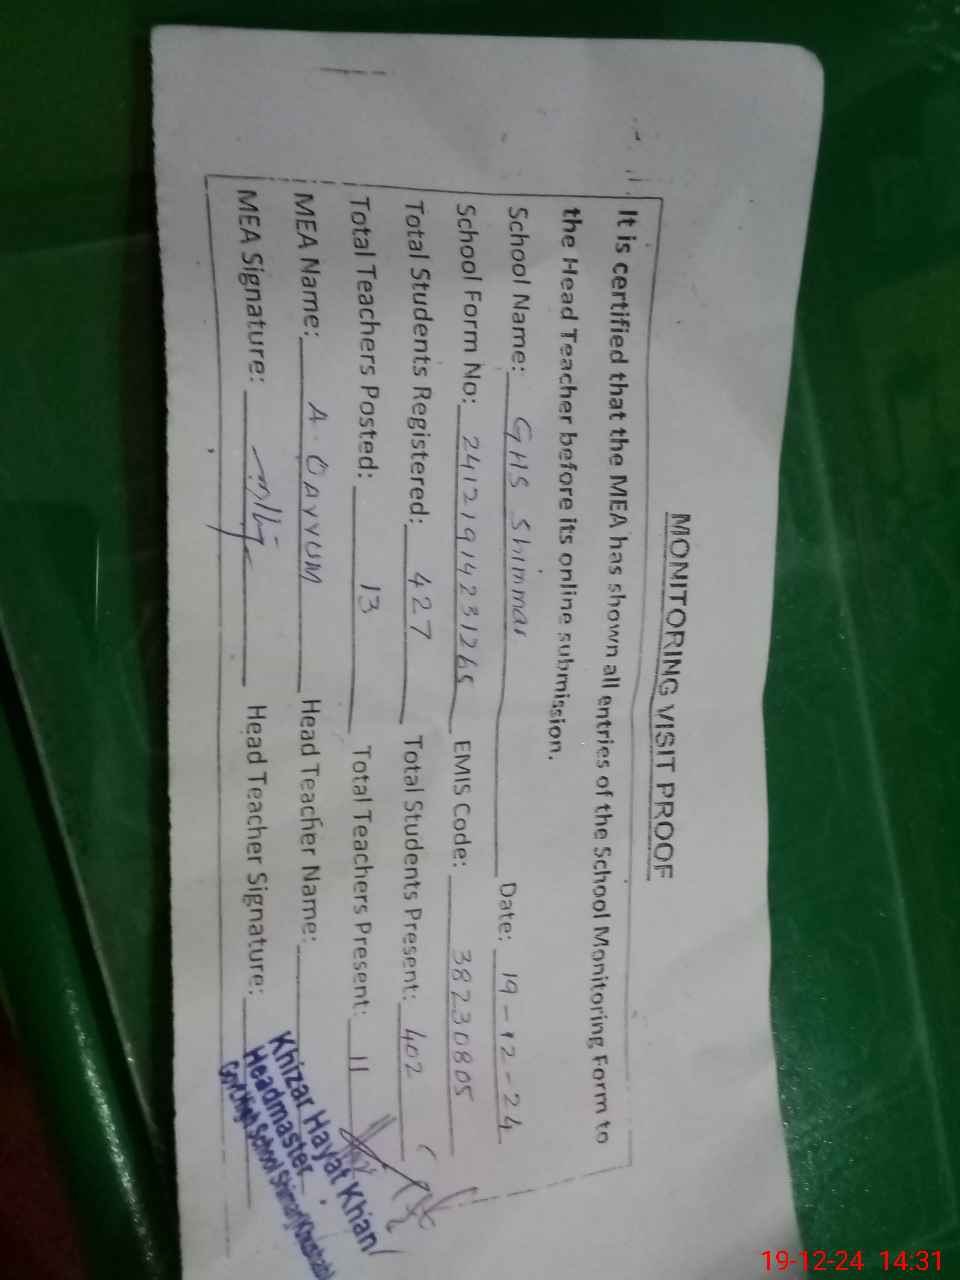 MONITORING VISIT PROOF
It is certified that the MEA has shown all entries of the School Monitoring Form to
the Head Teacher before its online submission.
School Name: GHS Shimmar Date: 19-12-24
School Form No: 241219142312 EMIS Code: 38230805
Total Students Registered: 427 Total Students Present: 402
Total Teachers Posted: 13 Total Teachers Present: 11
MEA Name: A. QAYYUM Head Teacher Name:
MEA Signature: Head Teacher Signature:
Khizar Hayat Khan
Headmaster
Govt.High School
19-12-24 14:31